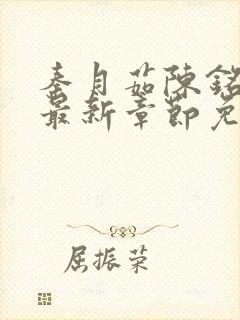 秦月茹陳銘
最新章節免
屈振荣